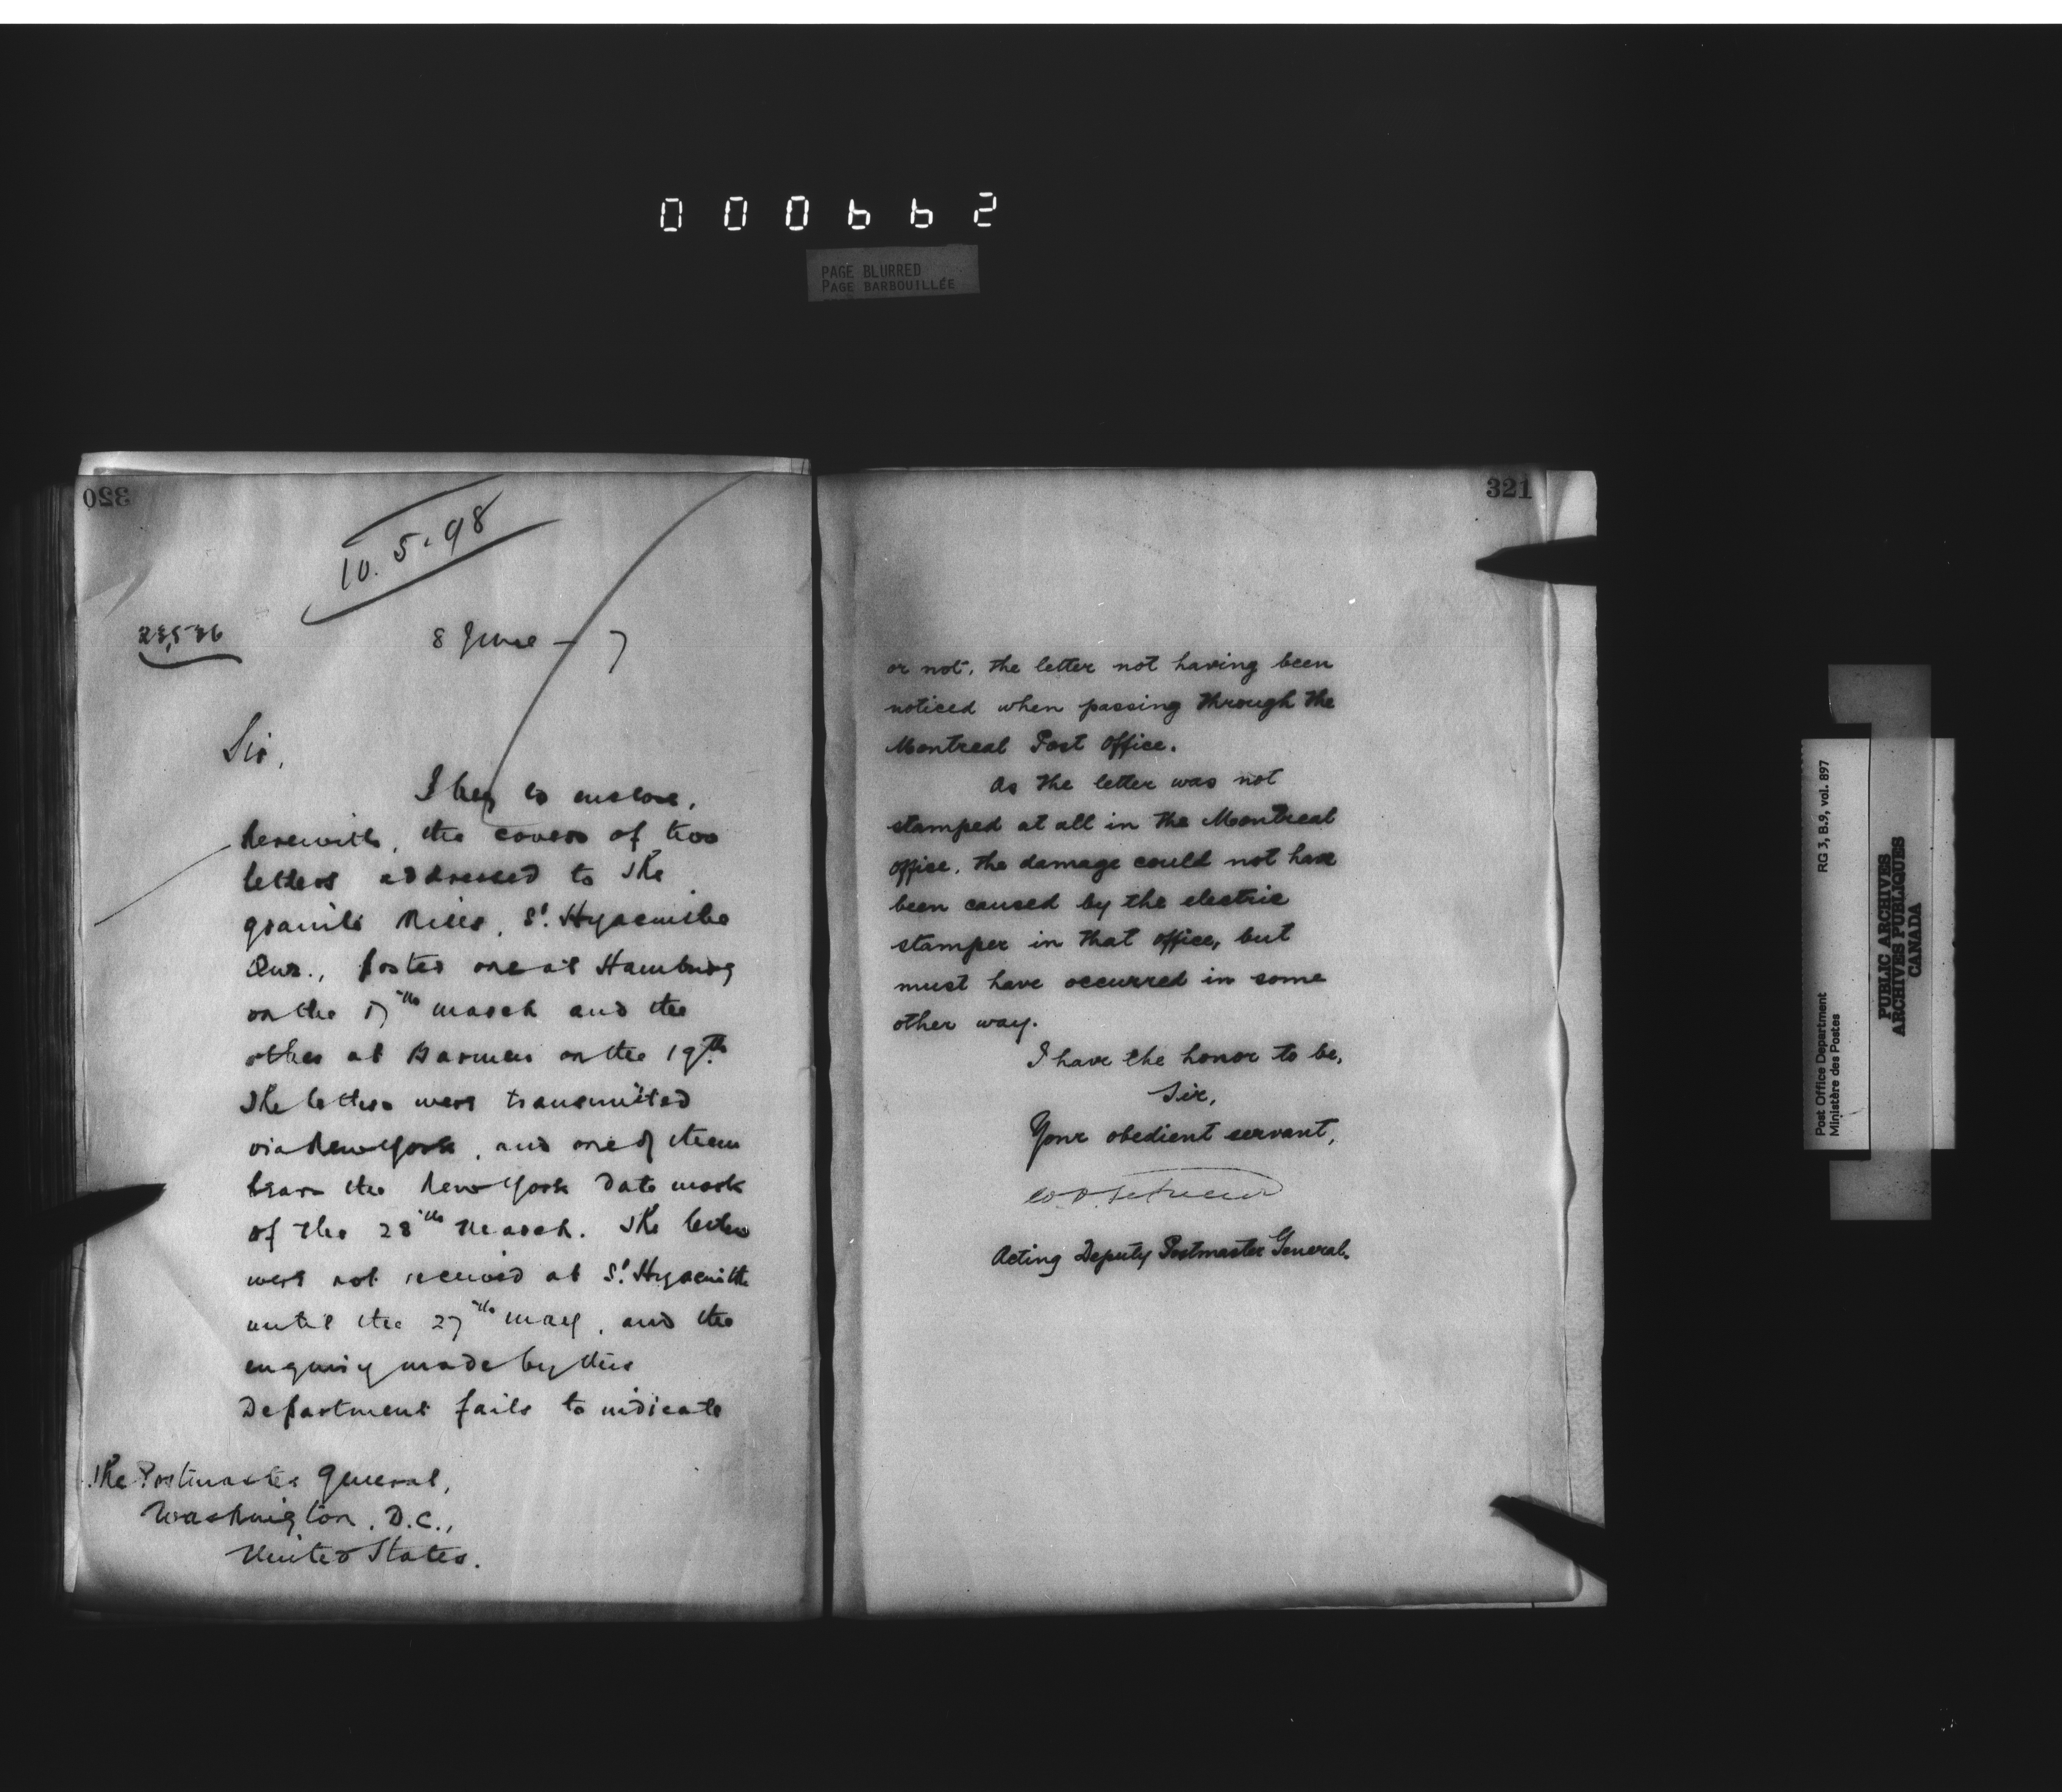 000662
PAGE BLURRED
PAGE BARBOUILLÉE
320
10.5.98
8 June – 7
Sir,
I beg to enclose,
herewith, the covers of two
letters addressed to The
Granite Mills, St. Hyacinthe
Que., posted one at Hamburg
on the 17th March and the
other at Barmen on the 19th.
The letters were transmitted
via New York, and one of them
bears the New York date mark
of the 28th March. The letters
were not received at St. Hyacinthe
until the 27th May, and the
enquiry made by this
Department fails to indicate
The Postmaster General,
Washington, D.C.,
United States.
321
or not, the letter not having been
noticed when passing through the
Montreal Post Office.
As the letter was not
stamped at all in the Montreal
Office, the damage could not have
been caused by the electric
stamper in that office, but
must have occurred in some
other way.
I have the honor to be,
Sir,
Your obedient servant,
Acting Deputy Postmaster General.
Post Office Department RG 3, B.9, vol. 897
Ministère des Postes
PUBLIC ARCHIVES
ARCHIVES PUBLIQUES
CANADA